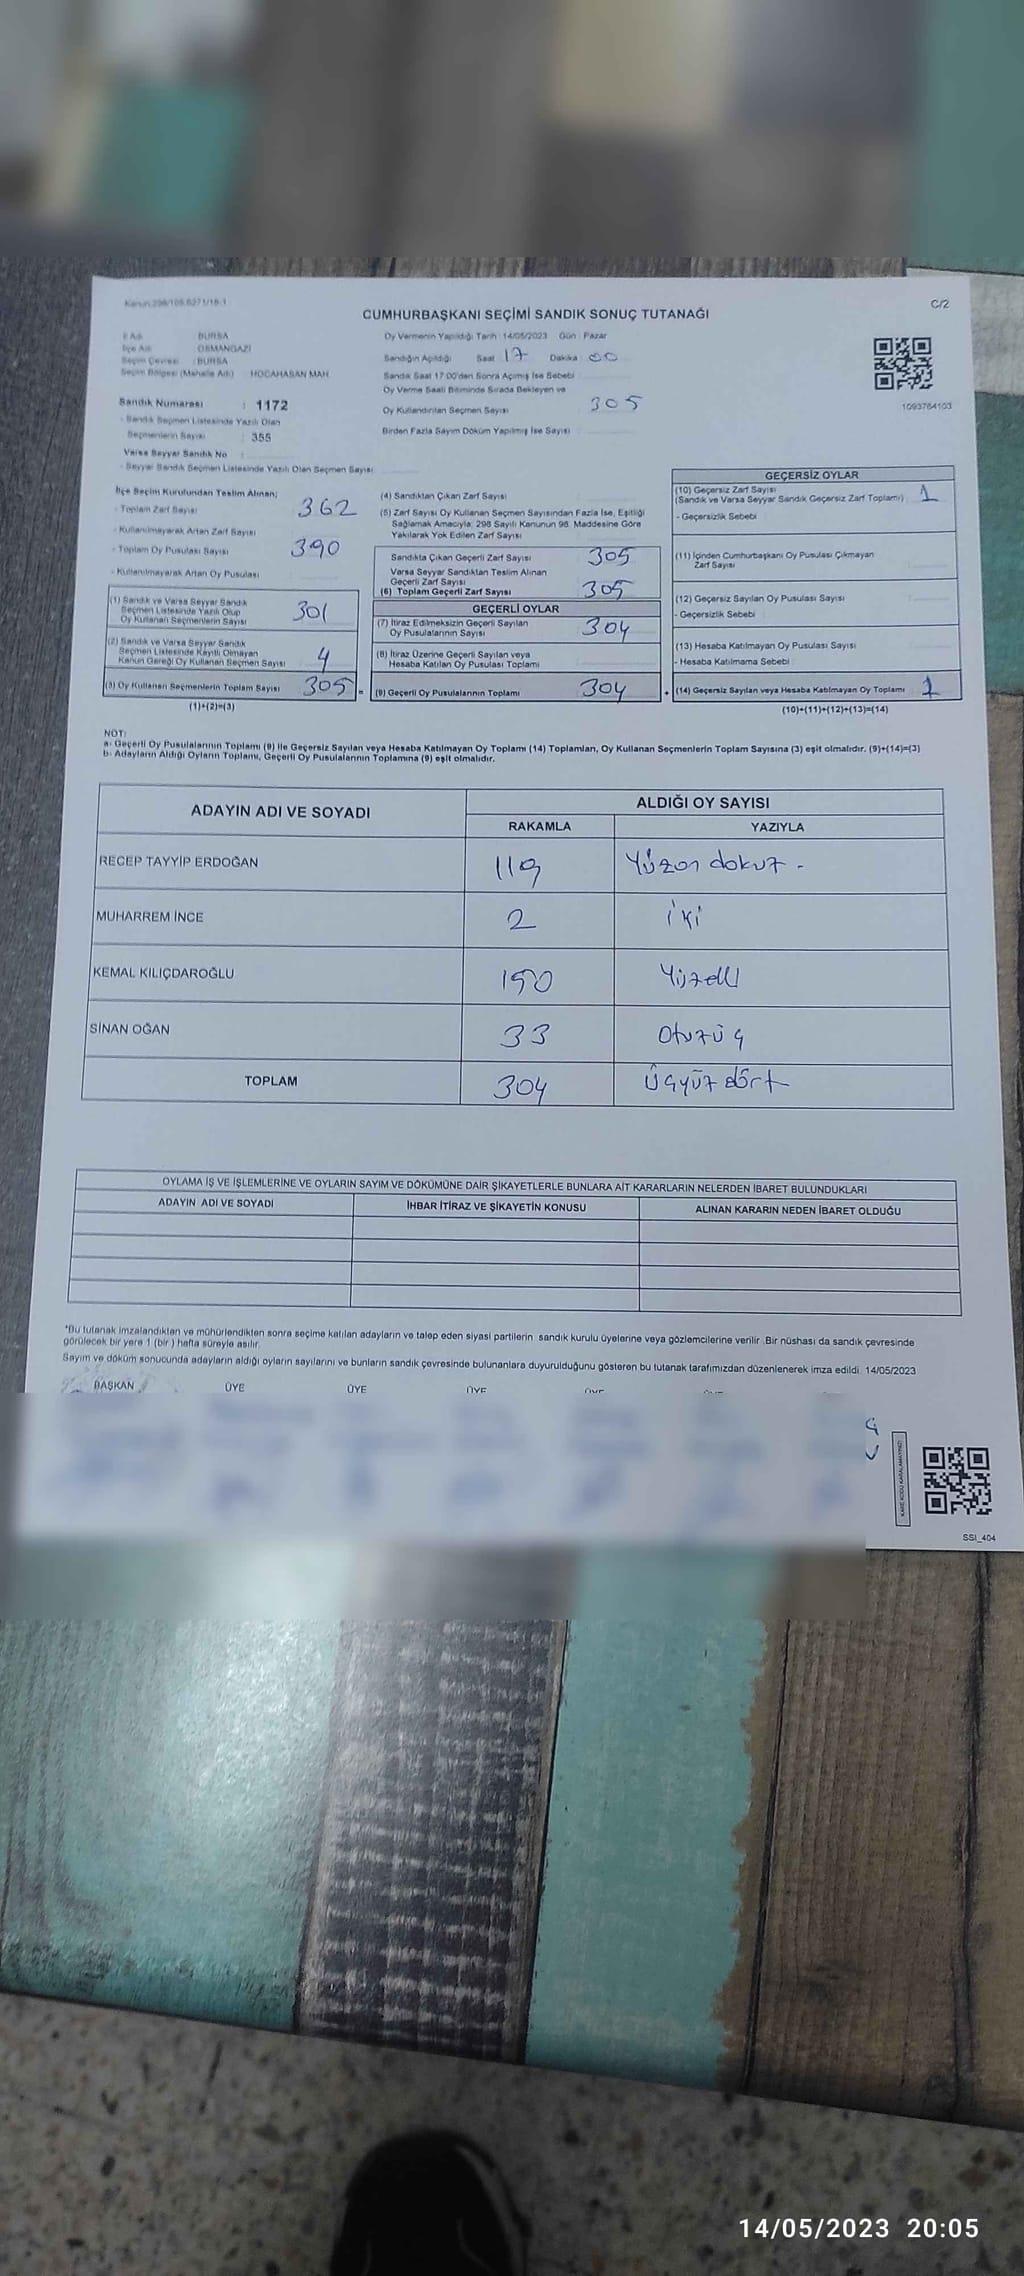 Kanun:298/105,6271/18-1
C/2
CUMHURBAŞKANI SEÇİMİ SANDIK SONUÇ TUTANAĞI
İl Adı : BURSA
İlçe Adı : OSMANGAZİ
Seçim Çevresi : BURSA
Seçim Bölgesi (Mahalle Adı) : HOCAHASAN MAH.
Sandık Numarası : 1172
- Sandık Seçmen Listesinde Yazılı Olan
Seçmenlerin Sayısı : 355
Varsa Seyyar Sandık No :
- Seyyar Sandık Seçmen Listesinde Yazılı Olan Seçmen Sayısı :
Oy Vermenin Yapıldığı Tarih : 14/05/2023 Gün : Pazar
Sandığın Açıldığı Saat 17 Dakika 00
Sandık Saat 17:00'den Sonra Açılmış İse Sebebi
Oy Verme Saati Bitiminde Sırada Bekleyen ve
Oy Kullandırılan Seçmen Sayısı 305
Birden Fazla Sayım Döküm Yapılmış İse Sayısı
1093764103
İlçe Seçim Kurulundan Teslim Alınan;
- Toplam Zarf Sayısı 362
- Kullanılmayarak Artan Zarf Sayısı
- Toplam Oy Pusulası Sayısı 390
- Kullanılmayarak Artan Oy Pusulası
(1) Sandık ve Varsa Seyyar Sandık
Seçmen Listesinde Yazılı Olup
Oy Kullanan Seçmenlerin Sayısı 301
(2) Sandık ve Varsa Seyyar Sandık
Seçmen Listesinde Kayıtlı Olmayan
Kanun Gereği Oy Kullanan Seçmen Sayısı 4
(3) Oy Kullanan Seçmenlerin Toplam Sayısı 305 =
(1)+(2)=(3)
(4) Sandıktan Çıkan Zarf Sayısı
(5) Zarf Sayısı Oy Kullanan Seçmen Sayısından Fazla İse, Eşitliği
Sağlamak Amacıyla; 298 Sayılı Kanunun 98. Maddesine Göre
Yakılarak Yok Edilen Zarf Sayısı
Sandıkta Çıkan Geçerli Zarf Sayısı 305
Varsa Seyyar Sandıktan Teslim Alınan
Geçerli Zarf Sayısı
(6) Toplam Geçerli Zarf Sayısı 305
GEÇERLİ OYLAR
(7) İtiraz Edilmeksizin Geçerli Sayılan
Oy Pusulalarının Sayısı 304
(8) İtiraz Üzerine Geçerli Sayılan veya
Hesaba Katılan Oy Pusulası Toplamı
(9) Geçerli Oy Pusulalarının Toplamı 304 +
GEÇERSİZ OYLAR
(10) Geçersiz Zarf Sayısı
(Sandık ve Varsa Seyyar Sandık Geçersiz Zarf Toplamı) 1
- Geçersizlik Sebebi :
(11) İçinden Cumhurbaşkanı Oy Pusulası Çıkmayan
Zarf Sayısı
(12) Geçersiz Sayılan Oy Pusulası Sayısı
- Geçersizlik Sebebi :
(13) Hesaba Katılmayan Oy Pusulası Sayısı
- Hesaba Katılmama Sebebi :
(14) Geçersiz Sayılan veya Hesaba Katılmayan Oy Toplamı 1
(10)+(11)+(12)+(13)=(14)
NOT:
a- Geçerli Oy Pusulalarının Toplamı (9) ile Geçersiz Sayılan veya Hesaba Katılmayan Oy Toplamı (14) Toplamları, Oy Kullanan Seçmenlerin Toplam Sayısına (3) eşit olmalıdır. (9)+(14)=(3)
b- Adayların Aldığı Oyların Toplamı, Geçerli Oy Pusulalarının Toplamına (9) eşit olmalıdır.
ADAYIN ADI VE SOYADI
ALDIĞI OY SAYISI
RAKAMLA YAZIYLA
RECEP TAYYİP ERDOĞAN 119 Yüzon dokuz -
MUHARREM İNCE 2 iki
KEMAL KILIÇDAROĞLU 150 Yüzelli
SİNAN OĞAN 33 Otuzüç
TOPLAM 304 Üçyüz dört
OYLAMA İŞ VE İŞLEMLERİNE VE OYLARIN SAYIM VE DÖKÜMÜNE DAİR ŞİKAYETLERLE BUNLARA AİT KARARLARIN NELERDEN İBARET BULUNDUKLARI
ADAYIN ADI VE SOYADI İHBAR İTİRAZ VE ŞİKAYETİN KONUSU ALINAN KARARIN NEDEN İBARET OLDUĞU
*Bu tutanak imzalandıktan ve mühürlendikten sonra seçime katılan adayların ve talep eden siyasi partilerin sandık kurulu üyelerine veya gözlemcilerine verilir. Bir nüshası da sandık çevresinde
görülecek bir yere 1 (bir ) hafta süreyle asılır.
Sayım ve döküm sonucunda adayların aldığı oyların sayılarını ve bunların sandık çevresinde bulunanlara duyurulduğunu gösteren bu tutanak tarafımızdan düzenlenerek imza edildi. 14/05/2023
BAŞKAN ÜYE ÜYE ÜYE ÜYE
KARE KODU KARALAMAYINIZ!
SSI_404
14/05/2023 20:05